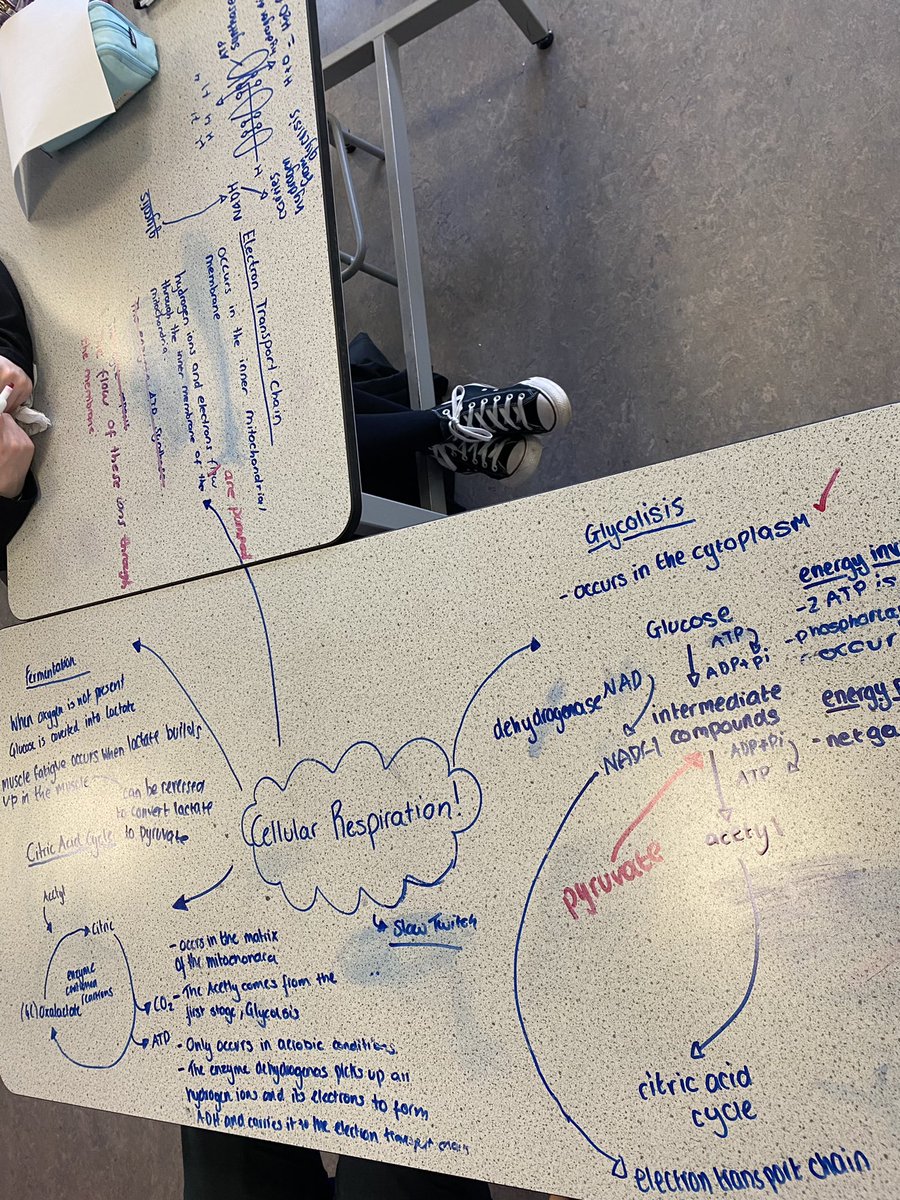 Cellular Respiration!
Slow Twitch
Glycolisis
- occurs in the cytoplasm
Glucose
ATP
ADP+Pi
dehydrogenase NAD
NADH
intermediate
compounds
ADP+Pi
ATP
pyruvate
acetyl
citric acid
cycle
electron transport chain
energy inv
- 2 ATP is
- phosphor
occur
energy
- net ga
Fermentation
When oxygen is not present
Glucose is coverted into lactate
muscle fatigue occurs when lactate
up in the muscle
can be reversed
to convert lactate
to pyruvate
Citric Acid Cycle
Acetyl
Citric
enzyme
reactions
Oxalactate
CO2
- occurs in the matrix
of the mitochondria
- The Acetly comes from the
first stage, Glycolisis
- Only occurs in aerobic conditions
- The enzyme dehydrogenas picks up all
hydrogen ions and its electrons to form
and carries it to the electron transport chain
Electron Transport Chain
occurs in the inner mitochondrial
membrane
hydrogen ions and electrons flow
are pumped
through the inner membrane of the
mitochondria.
The energy ATP synthase
flow of these ions through
the membrane
NADH
carries
hydrogen
from
glycolisis
ATP
synthase